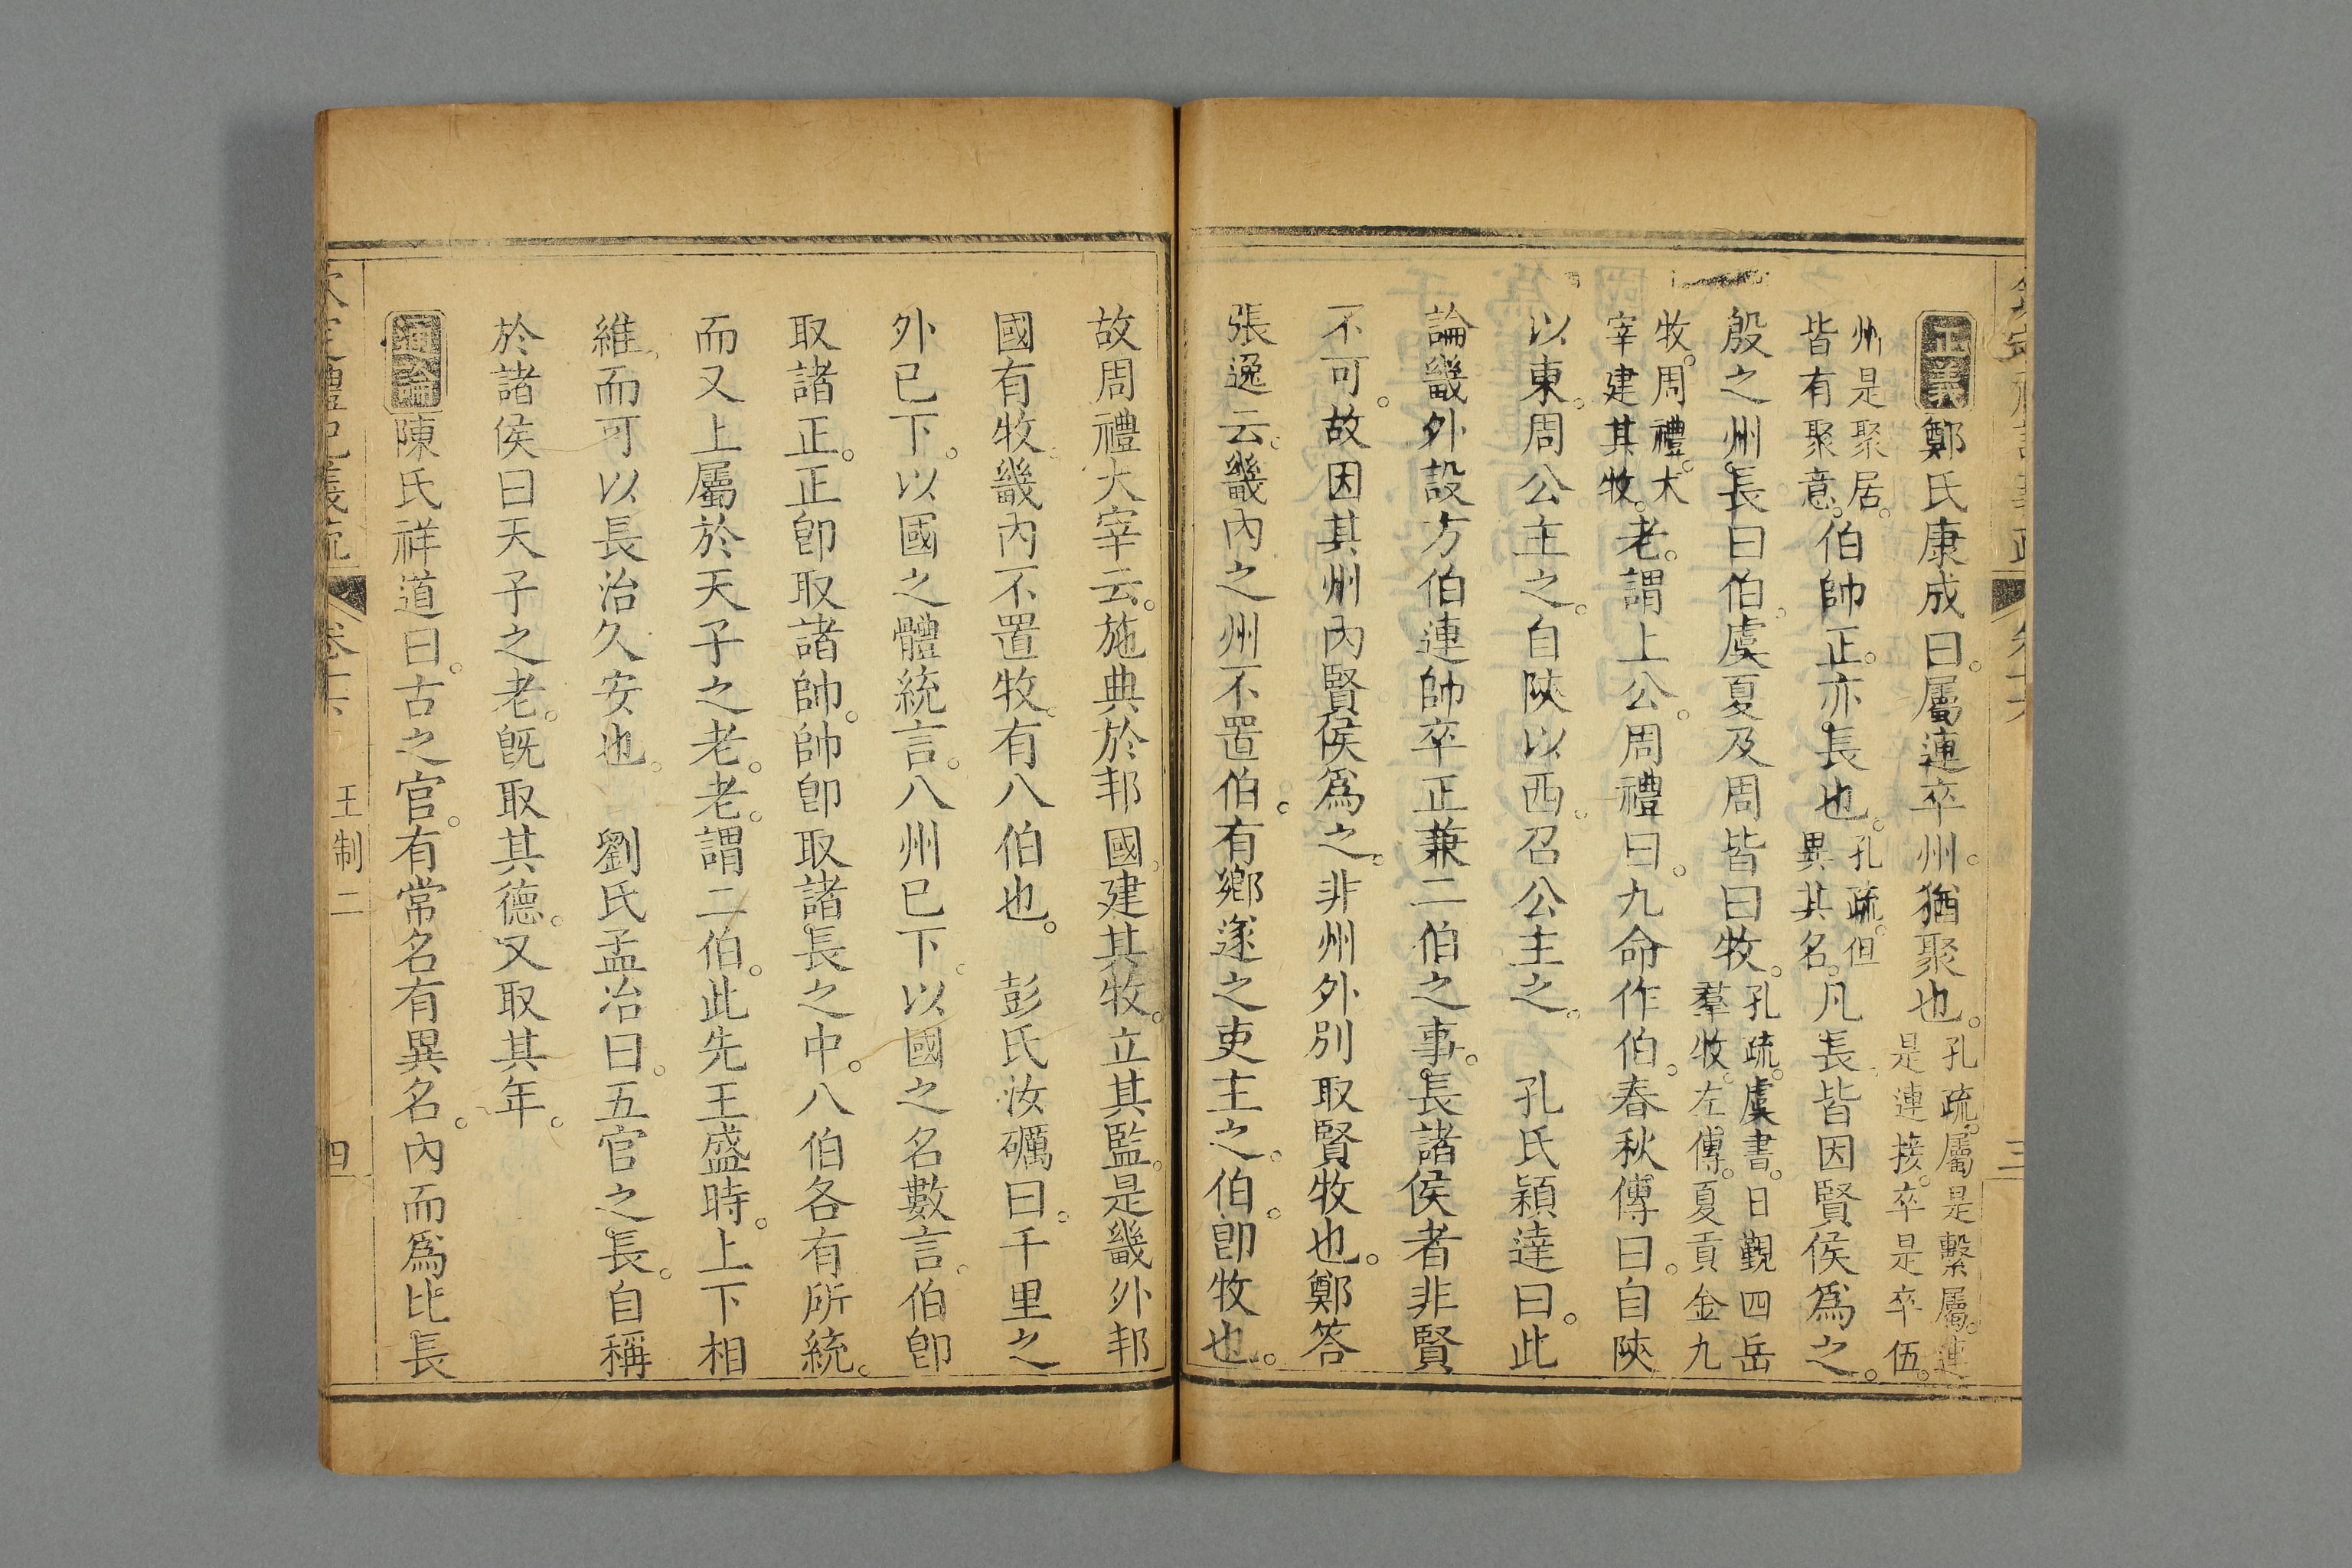 正義鄭氏康成曰。屬連卒州。猶聚也。孔疏。屬是繫屬。連是連接。卒是卒伍。
州是聚居。皆有聚意。伯帥正。亦長也。孔疏。但異其名。凡長皆因賢侯爲之。
殷之州長曰伯。虞夏及周皆曰牧。孔疏。虞書。日覲四岳羣牧。左傳。夏貢金九
牧。周禮。大宰建其牧。老。謂上公。周禮曰。九命作伯。春秋傳曰。自陝
以東。周公主之。自陝以西。召公主之。 孔氏穎達曰。此
論畿外設方伯連帥卒正兼二伯之事。長諸侯者非賢
不可。故因其州內賢侯爲之。非州外別取賢牧也。鄭答
張逸云。畿內之州不置伯。有鄉遂之吏主之。伯。卽牧也。
故周禮大宰云。施典於邦國。建其牧。立其監。是畿外邦
國有牧。畿內不置牧。有八伯也。 彭氏汝礪曰。千里之
外已下。以國之體統言。八州已下。以國之名數言。伯卽
取諸正。正卽取諸帥。帥卽取諸長之中。八伯各有所統。
而又上屬於天子之老。老。謂二伯。此先王盛時。上下相
維。而可以長治久安也。 劉氏孟冶曰。五官之長。自稱
於諸侯曰天子之老。旣取其德。又取其年。
通論陳氏祥道曰。古之官。有常名有異名。內而爲比長
禮記義疏 卷十六 王制二 四